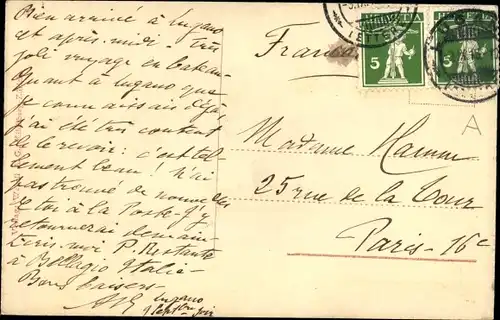 Bien arrivé à Lugano
cet après midi - très
joli voyage en bateau
Quant à Lugano que
je connaissais déjà,
j'ai été très content
de le revoir : c'est tel
lement beau ! N'ai
pas trouvé de nouvelles
de toi à la Poste - J'y
retournerai demain
Ecris-moi P. Restante
à Bellagio Italie -
Bons baisers
Lugano
HELVETIA
5
5
LETTER
France
A
Madame Hamm
25 rue de la Tour
Paris - 16e